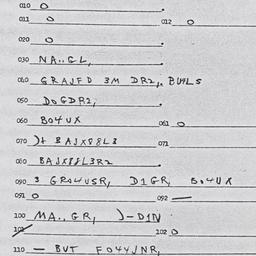 010 O
011 O 012 O
020 O
030 NA..GL,
040 GRAJFD 3M DR2,. BU4LS
050 DOGDR2,
060 BO4UX
061 O
070 )+ BAJX88L3 071
080 BAJX88L3R2
090 3 GRO4USR, D1GR, BO4UX
091 O 092 —
100 MA.. GR, )-D1N
101 102 O
110 — BUT FO44JNR,